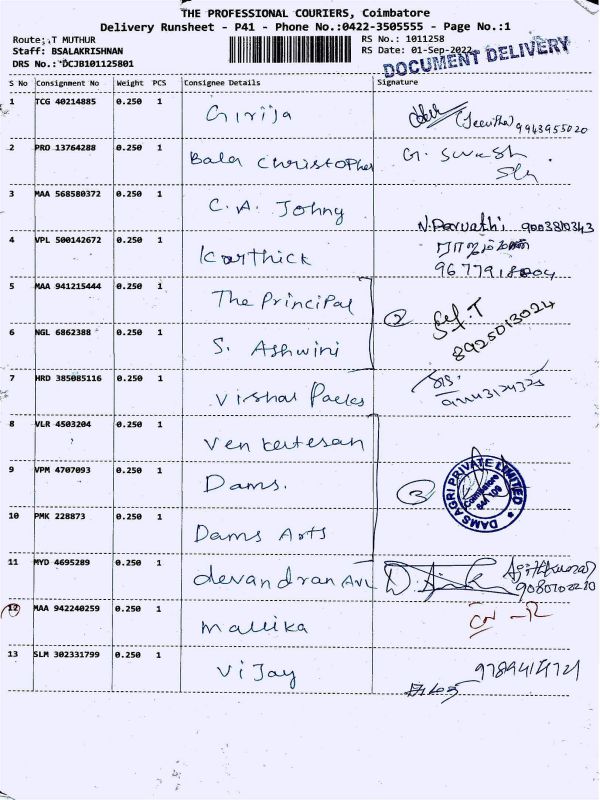 THE PROFESSIONAL COURIERS, Coimbatore
Delivery Runsheet - P41 - Phone No.:0422-3505555 - Page No.:1
Route: T MUTHUR
RS No.: 1011258
Staff: BSALAKRISHNAN
RS Date: 01-Sep-2022
DRS No.: DCJB101125801
DOCUMENT DELIVERY
S No Consignment No Weight PCS Consignee Details Signature
1 TCG 40214885 0.250 1 Girija (Jeevitha) 9943955020
2 PRO 13764288 0.250 1 Bala Christopher G. Swash
3 MAA 568580372 0.250 1 C.A. Johny N. Parvathi 9003810343
4 VPL 500142672 0.250 1 Karthick
5 MAA 941215444 0.250 1 The Principal
2
6 NGL 6862388 0.250 1 S. Ashwini 8925013024
7 HRD 385085116 0.250 1 Vishal Packs
8 VLR 4503204 0.250 1 Venkatesan
9 VPM 4707093 0.250 1 Dams. 3
DAMS AGRI PRIVATE LIMITED
Coimbatore
10 PMK 228873 0.250 1 Dams Arts
11 MYD 4695289 0.250 1 devandran AVL
12 MAA 942240259 0.250 1 mallika
13 SLM 302331799 0.250 1 Vijay